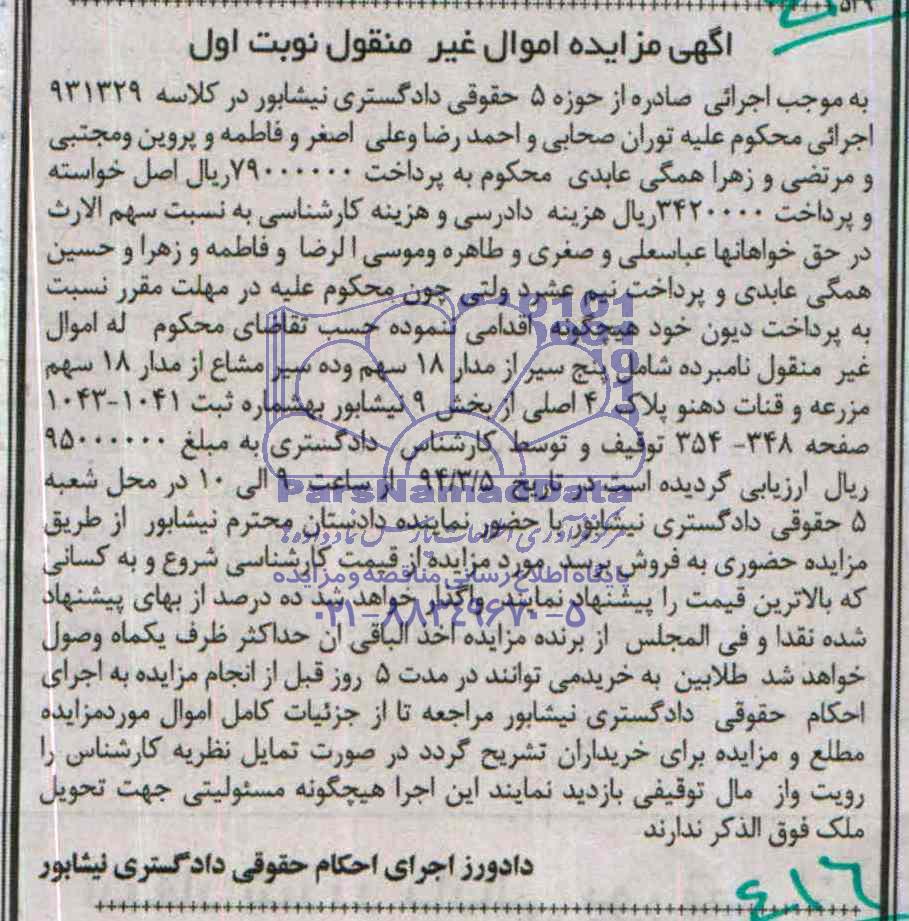 ۵۲۹
آگهی مزایده اموال غیر منقول نوبت اول
به موجب اجرائی صادره از حوزه ۵ حقوقی دادگستری نیشابور در کلاسه ۹۳۱۳۲۹
اجرائی محکوم علیه توران صحابی و احمد رضا وعلی اصغر و فاطمه و پروین ومجتبی
و مرتضی و زهرا همگی عابدی محکوم به پرداخت ۷۹۰۰۰۰۰۰ریال اصل خواسته
و پرداخت ۳۴۲۰۰۰۰ریال هزینه دادرسی و هزینه کارشناسی به نسبت سهم الارث
در حق خواهانها عباسعلی و صغری و طاهره وموسی الرضا و فاطمه و زهرا و حسین
همگی عابدی و پرداخت نیم عشرد ولتی چون محکوم علیه در مهلت مقرر نسبت
به پرداخت دیون خود هیچگونه اقدامی ننموده حسب تقاضای محکوم له اموال
غیر منقول نامبرده شامل پنج سیر از مدار ۱۸ سهم وده سیر مشاع از مدار ۱۸ سهم
مزرعه و قنات دهنو پلاک ۴ اصلی از بخش ۹ نیشابور بهشماره ثبت ۱۰۴۱-۱۰۴۳
صفحه ۳۴۸- ۳۵۴ توقیف و توسط کارشناس دادگستری به مبلغ ۹۵۰۰۰۰۰۰
ریال ارزیابی گردیده است در تاریخ ۹۴/۳/۵ از ساعت ۹ الی ۱۰ در محل شعبه
ParsNamadData
۵ حقوقی دادگستری نیشابور با حضور نماینده دادستان محترم نیشابور از طریق
مزایده حضوری به فروش برسد مورد مزایده از قیمت کارشناسی شروع و به کسانی
پایگاه اطلاع رسانی مناقصه و مزایده
که بالاترین قیمت را پیشنهاد نمایند واگذار خواهد شد ده درصد از بهای پیشنهاد
۰۲۱-۸۸۳۴۹۶۷۰-۵
شده نقدا و فی المجلس از برنده مزایده اخذ الباقی ان حداکثر ظرف یکماه وصول
خواهد شد طلابین به خریدمی توانند در مدت ۵ روز قبل از انجام مزایده به اجرای
احکام حقوقی دادگستری نیشابور مراجعه تا از جزئیات کامل اموال موردمزایده
مطلع و مزایده برای خریداران تشریح گردد در صورت تمایل نظریه کارشناس را
رویت واز مال توقیفی بازدید نمایند این اجرا هیچگونه مسئولیتی جهت تحویل
ملک فوق الذکر ندارند
دادورز اجرای احکام حقوقی دادگستری نیشابور